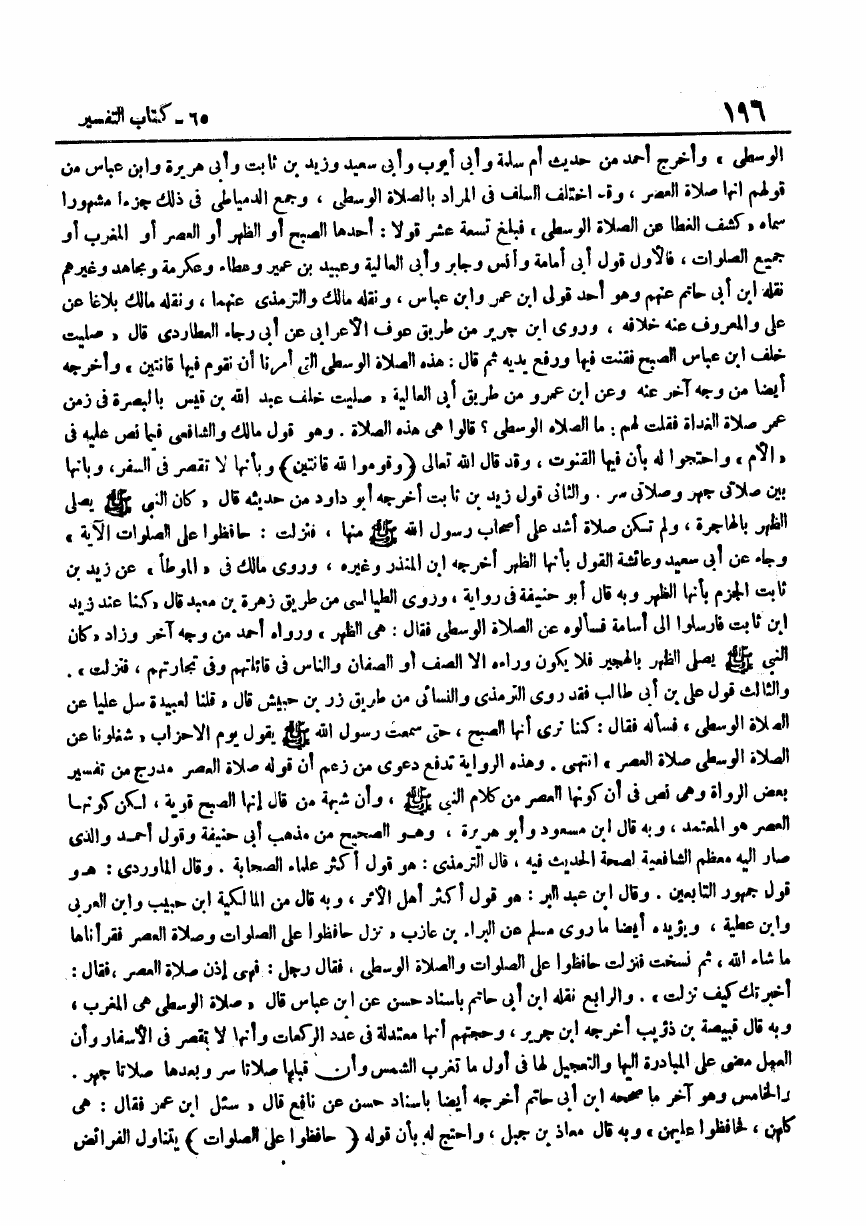 ١٩٦
٦٥ - كتاب التفسير
الوسطى » وأخرج أحمد من حديث أم سلمة وأبى أيوب وأبى سعيد وزيد بن ثابت وأبى هريرة وابن عباس من
قولهم انها صلاة العصر ، وقد اختلف السلف فى المراد بالصلاة الوسطى ، وجمع الدمياطى فى ذلك جزءا مشهورا
سماه « كشف الغطا عن الصلاة الوسطى » فبلغ تسعة عشر قولا : أحدها الصبح أو الظهر أو العصر أو المغرب أو
جميع الصلوات ، فالأول قول أبى أمامة وأنس وجابر وأبى العالية وعبيد بن عمير وعطاء وعكرمة ومجاهد وغيرهم
نقله ابن أبى حاتم عنهم وهو أحد قولى ابن عمر وابن عباس ، ونقله مالك والترمذى عنهما ، ونقله مالك بلاغا عن
على والمعروف عنه خلافه ، وروى ابن جرير من طريق عوف الأعرابى عن أبى رجاء العطاردى قال « صليت
خلف ابن عباس الصبح فقنت فيها ورفع يديه ثم قال : هذه الصلاة الوسطى التى أمرنا أن نقوم فيها قانتين » وأخرجه
أيضا من وجه آخر عنه وعن ابن عمرو من طريق أبى العالية « صليت خلف عبد الله بن قيس بالبصرة فى زمن
عمر صلاة الغداة فقلت لهم : ما الصلاه الوسطى ؟ قالوا هى هذه الصلاة . وهو قول مالك والشافعى فيما نص عليه فى
« الأم » واحتجوا له بأن فيها القنوت ، وقد قال الله تعالى ﴿ وقوموا لله قانتين ﴾ وبأنها لا تقصر فى السفر ، وبأنها
بين صلاتى جهر وصلاتى سر . والثانى قول زيد بن ثابت أخرجه أبو داود من حديثه قال « كان النبى ﷺ يصلى
الظهر بالهاجرة ، ولم تكن صلاة أشد على أصحاب رسول الله ﷺ منها ، فنزلت : حافظوا على الصلوات الآية »
وجاء عن أبى سعيد وعائشة القول بأنها الظهر أخرجه ابن المنذر وغيره ، وروى مالك فى « الموطأ » عن زيد بن
ثابت الجزم بأنها الظهر وبه قال أبو حنيفة فى رواية ، وروى الطيالسى من طريق زهرة بن معبد قال « كنا عند زيد
ابن ثابت فارسلوا الى أسامة فسألوه عن الصلاة الوسطى فقال : هى الظهر » ورواه أحمد من وجه آخر وزاد « كان
النبى ﷺ يصلى الظهر بالهجير فلا يكون وراءه الا الصف أو الصفان والناس فى قائلتهم وفى تجارتهم ، فنزلت » .
والثالث قول على بن أبى طالب فقد روى الترمذى والنسائى من طريق زر بن حبيش قال « قلنا لعبيدة سل عليا عن
الصلاة الوسطى ، فسأله فقال : كنا نرى أنها الصبح ، حتى سمعت رسول الله ﷺ يقول يوم الاحزاب « شغلونا عن
الصلاة الوسطى صلاة العصر » انتهى . وهذه الرواية تدفع دعوى من زعم أن قوله صلاة العصر مدرج من تفسير
بعض الرواة وهى نص فى أن كونها العصر من كلام النبى ﷺ ، وأن شبهة من قال إنها الصبح قوية ، لكن كونها
العصر هو المعتمد ، وبه قال ابن مسعود وأبو هريرة ، وهو الصحيح من مذهب أبى حنيفة وقول أحمد والذى
صار اليه معظم الشافعية لصحة الحديث فيه ، قال الترمذى : هو قول أكثر علماء الصحابة . وقال الماوردى : هو
قول جمهور التابعين . وقال ابن عبد البر : هو قول أكثر أهل الأثر ، وبه قال من المالكية ابن حبيب وابن العربى
وابن عطية ، ويؤيده أيضا ما روى مسلم عن البراء بن عازب « نزل حافظوا على الصلوات وصلاة العصر فقرأناها
ما شاء الله ، ثم نسخت فنزلت حافظوا على الصلوات والصلاة الوسطى ، فقال رجل : فهى إذن صلاة العصر ، فقال :
أخبرتك كيف نزلت » . والرابع نقله ابن أبى حاتم باسناد حسن عن ابن عباس قال « صلاة الوسطى هى المغرب ،
وبه قال قبيصة بن ذؤيب أخرجه ابن جرير ، وحجتهم أنها معتدلة فى عدد الركعات وأنها لا تقصر فى الأسفار وأن
العمل مضى على المبادرة اليها والتعجيل لها فى أول ما تغرب الشمس وأن قبلها صلاتا سر وبعدها صلاتا جهر .
والخامس وهو آخر ما صححه ابن أبى حاتم أخرجه أيضا باسناد حسن عن نافع قال « سئل ابن عمر فقال : هى
كلهن ، فحافظوا عليهن » وبه قال معاذ بن جبل ، واحتج له بأن قوله ﴿ حافظوا على الصلوات ﴾ يتناول الفرائض